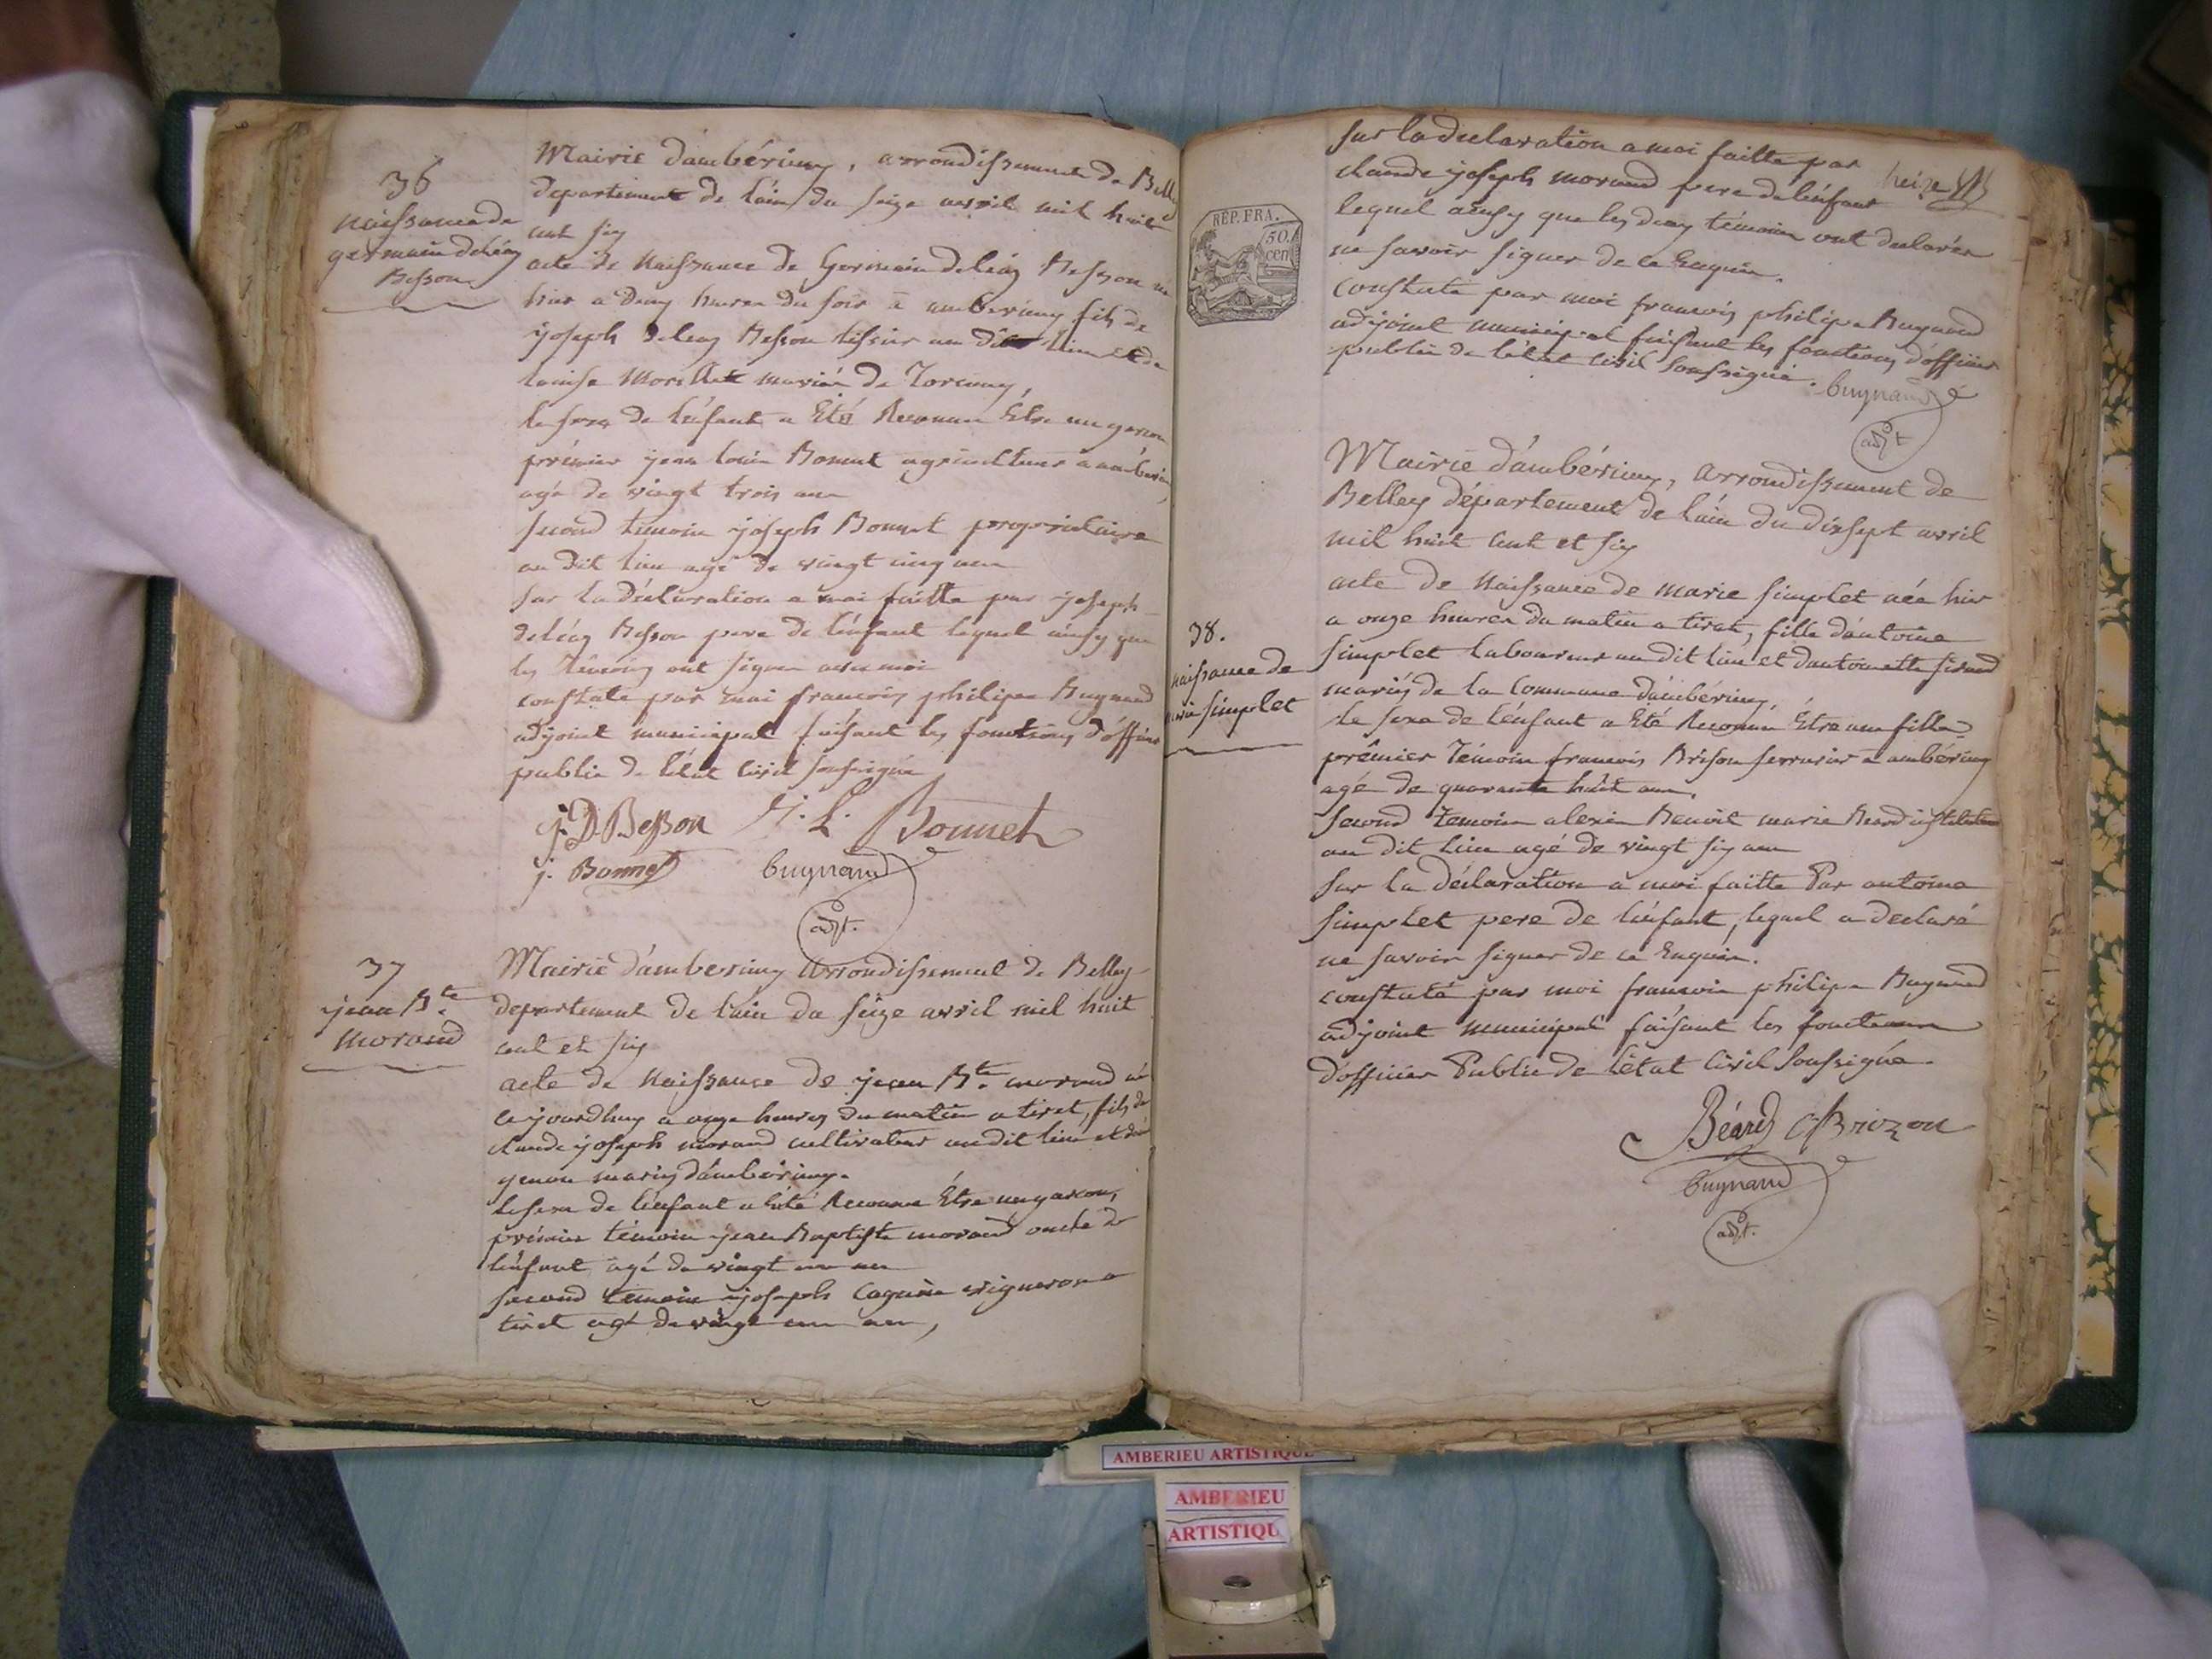 36
naissance de
germain deléaz
Besson
Mairie d'ambérieuy, arrondissement de Belley
departement de l'ain du seize avril mil huit
cent six
acte de Naissance de Germain deléaz Besson né
hier a deux heures du soir a amberieuy fils de
joseph deleaz Besson tissier au dit lieu et de
louise Morellet mariés de Torcieuy,
le sexe de l'enfant a Eté Reconnu Etre un garcon
prémier jean louis Bonnet agriculteur a ambérieuy
agé de vingt trois ans
second temoin joseph Bonnet propriétaire
au dit lieu agé de vingt cinq ans
sur la déclaration a moi faitte par joseph
deléaz Besson pere de l'enfant lequel ainsy que
les témoins ont signer avec moi
constaté par moi francois philipe Bugnand
adjoint municipal faisant les fonctions d'officier
public de l'état civil soussigné
j.D. Besson J. L. Bonnet
j. Bonnet bugnand
adjt.
37
jean Bte.
morand
Mairie d'amberieuy arrondissement de Belley
departement de l'ain du seize avril mil huit
cent et six
acte de Naissance de jean Bte. morand né
ce jourdhuy a onze heures du matin a tiret, fils de
claude joseph morand cultivateur au dit lieu et de
mariés d'ambérieuy.
le sexe de l'enfant a été Reconnu Etre un garcon,
prémier témoin jean Baptiste morand oncle de
l'enfant agé de vingt un an
second temoin joseph vigneron a
tiret agé de vingt un an,
sur la declaration a moi faitte par
claude joseph morand pere de l'enfant
lequel ainsy que les deux témoins ont declarés
ne savoir signer de ce Enquis.
constaté par moi francois philipe Bugnand
adjoint municipal faisant les fonctions d'officier
public de l'état civil soussigné. bugnand
adjt
REP. FRA.
50.
cen
38.
naissance de
marie simplet
Mairie d'ambérieuy, arrondissement de
Belley département de l'ain du dixsept avril
mil huit cent et six
acte de Naissance de marie simplet née hier
a onze heures du matin a tiret, fille d'antoine
simplet laboureur au dit lieu et d'antoinette
mariés de la commune d'ambérieuy,
le sexe de l'enfant a été Reconnu Etre une fille
prémier témoin francois Brison serrurier a ambérieuy
agé de quarante huit ans,
second temoin alexis Benoit marie Beard instituteur
au dit lieu agé de vingt six ans
sur la déclaration a moi faitte Par antoine
simplet pere de l'enfant, lequel a declaré
ne savoir signer de ce Enquis.
constaté par moi francois philipe Bugnand
adjoint municipal faisant les fonctions
d'officier Public de l'état civil soussigné.
Béard Brizon
bugnand
adjt.
AMBERIEU ARTISTIQUE
AMBERIEU
ARTISTIQU